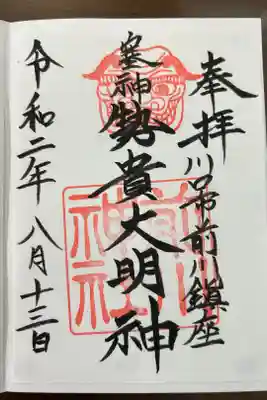 奉拝
川口市前川鎮座
神
勢貴大明神
令和二年八月十三日